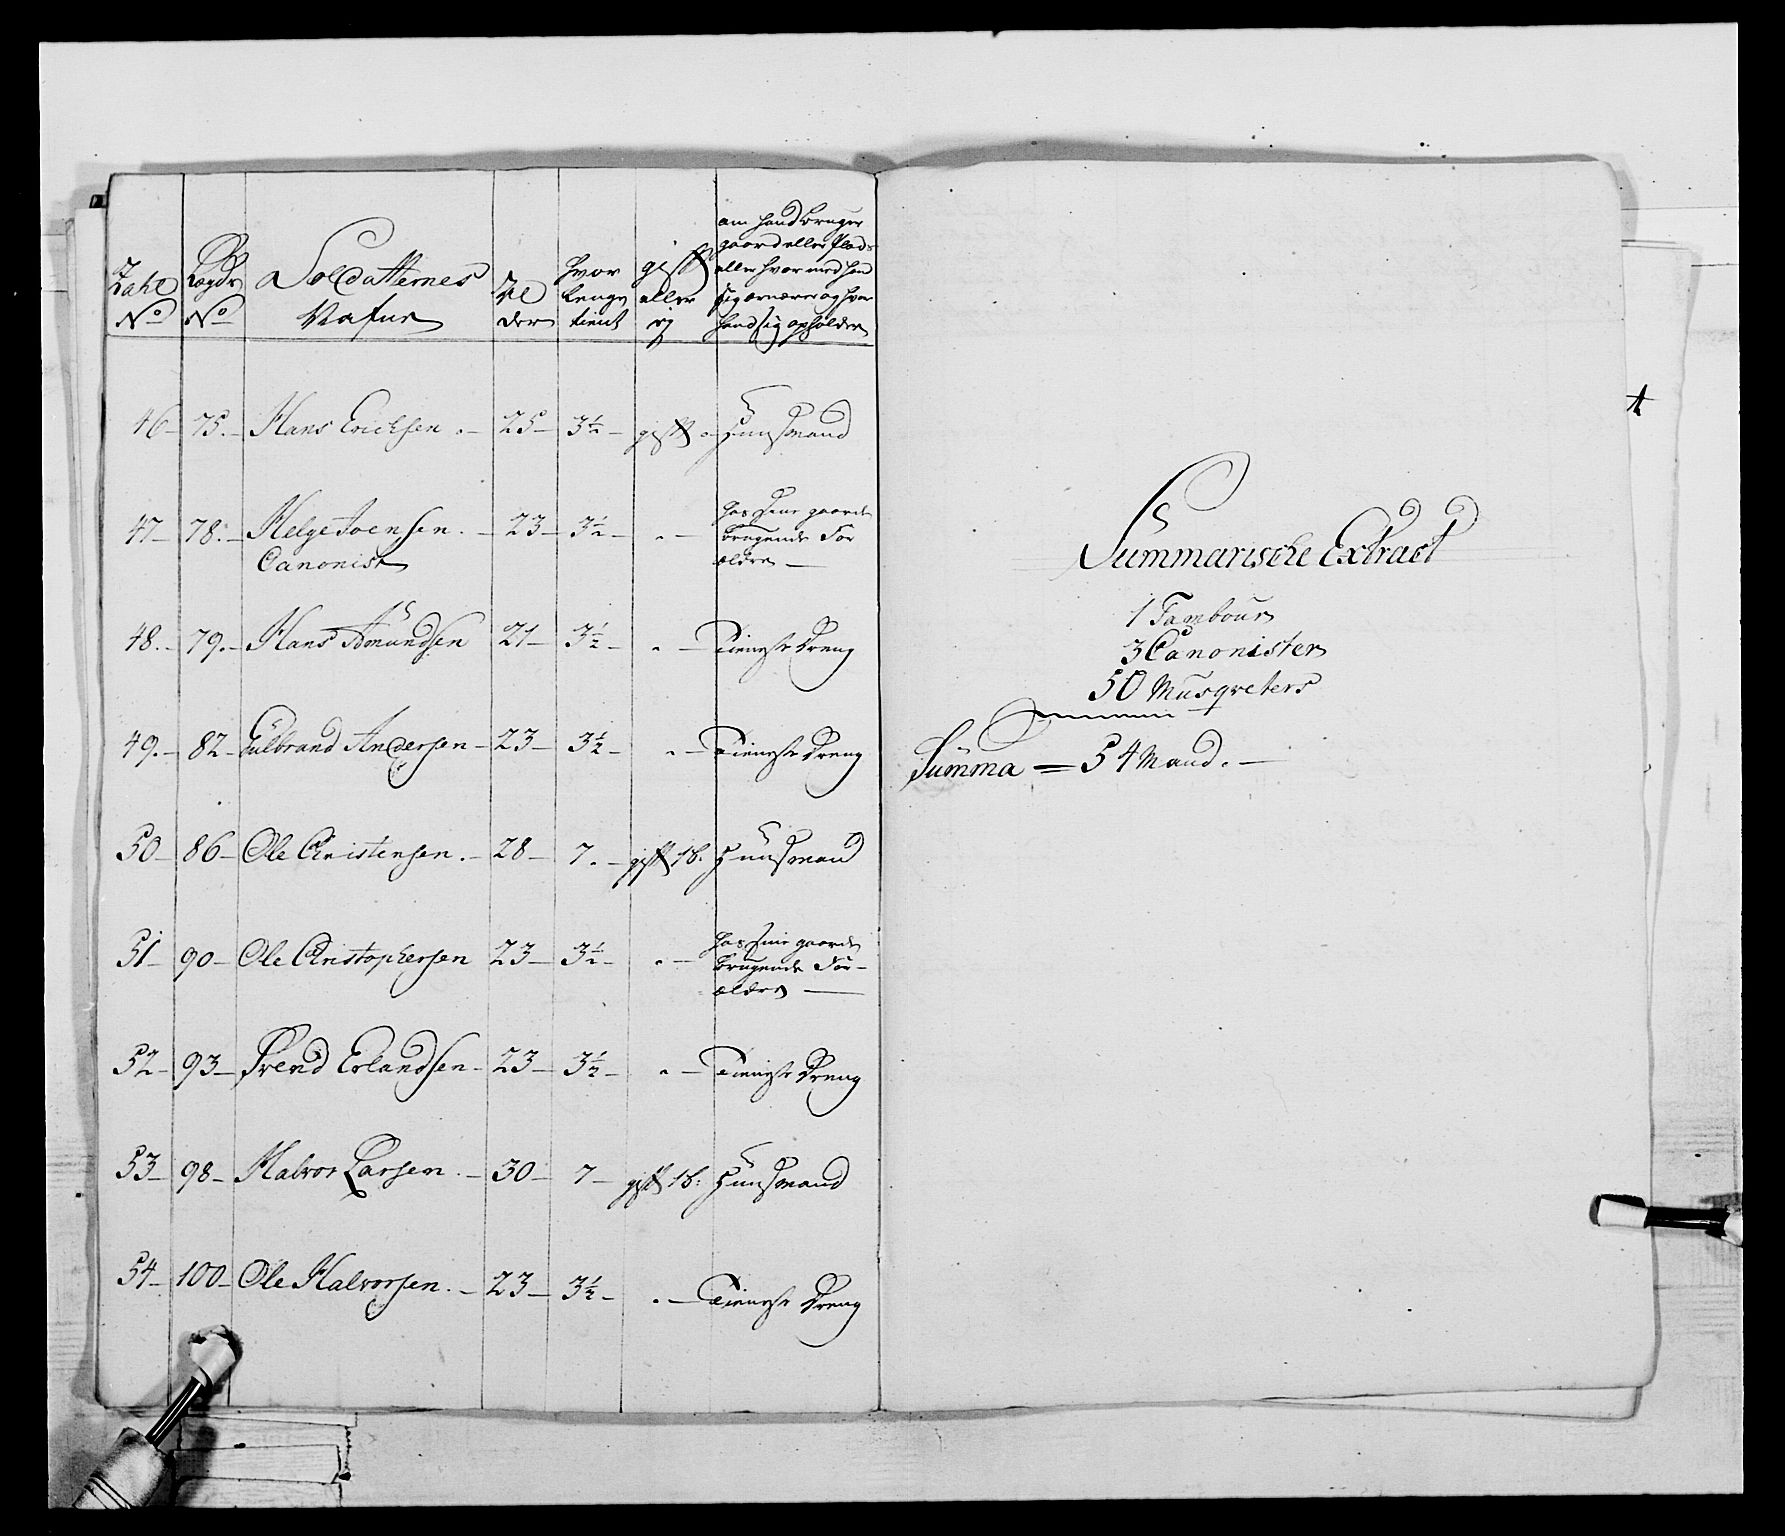 Zahl No | Lægds No | Soldatternes Nafne | Alder | hvor lenge tient | gift eller ej | om hand bruger gaard eller Plads eller hvor med hand sig ernærer og hvor hand sig opholder
46 – 75. – Hans Erichsen . – 25 – 3½ – gift – Huusmand
47 – 78. – Helge Joensen . – 23 – 3½ – . – hos sine gaard
Canonist brugende For
ældre –
48. – 79. – Hans Amundsen 21 – 3½ – . – Tieneste Dreng
49. – 82 – Gulbrand Andersen – 23 – 3½ – . – Tieneste Dreng
50 – 86 – Ole Christensen . – 28 – 7. – gift 1b. Huusmand
51 – 90 – Ole Christophersen 23 – 3½ – . – hos sine gaard
brugende For–
ældre –
52 – 93 – Svend Erlandsen – 23 – 3½ – . – Tieneste Dreng
53 – 98 – Halvor Larsen . – 30 – 7 – gift 1b. Huusmand
54 – 100 – Ole Halvorsen . – 23 – 3½ – . – Tieneste Dreng
Summarische Extract
1 Tambour
3 Canonister
50 Musqveters
Summa = 54 Mand. –